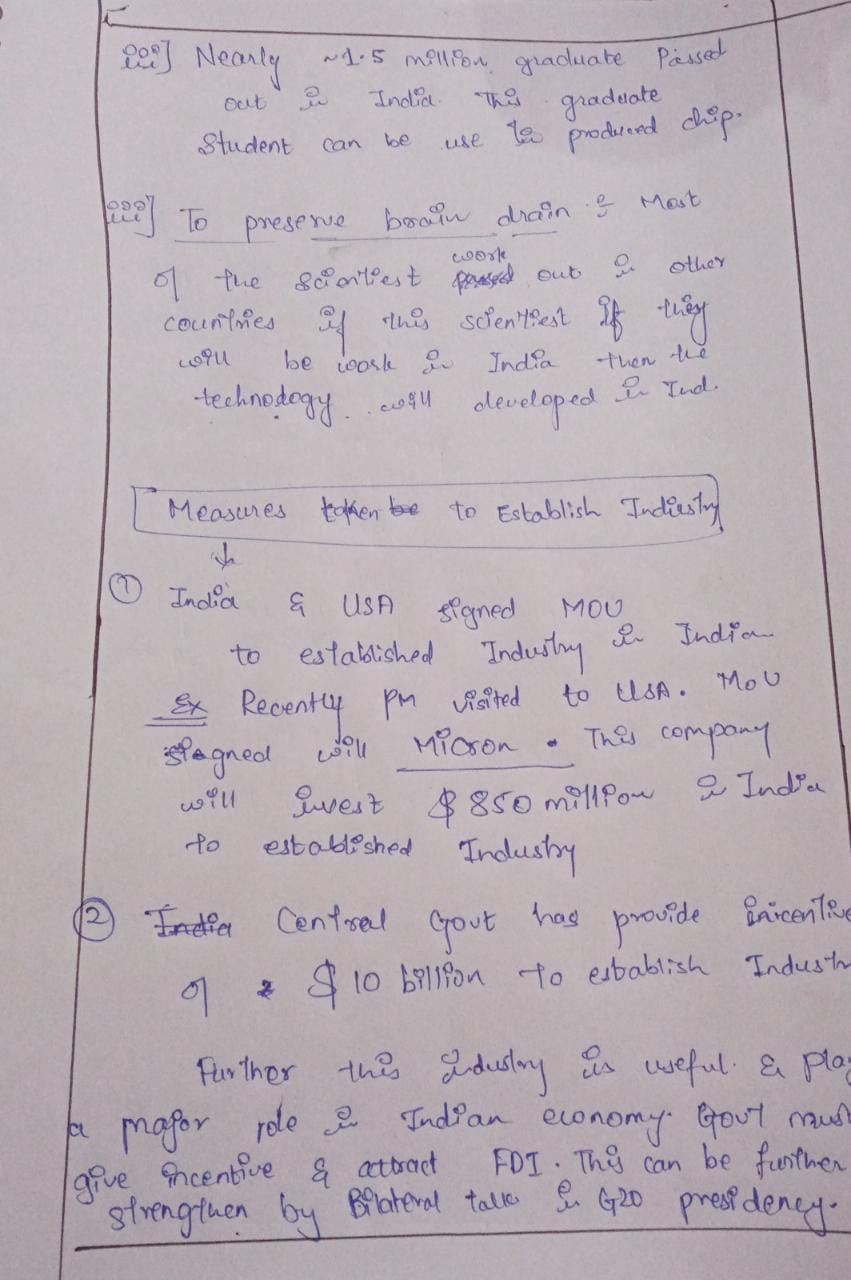 iii] Nearly ~1.5 million graduate Passed
out in India. This graduate
Student can be use to produced chip.
iiii] To preserve brain drain :- Most
of the scientiest work out in other
countries if this scientiest if they
will be work in India then the
technology will developed in Ind.
Measures taken to Establish Industry
① India & USA signed MOU
to established Industry in India
Ex Recently PM visited to USA. MoU
signed will Micron. This company
will invest $850 million in India
to established Industry
② India Central Govt has provide incentive
of $10 billion to establish Industr
Further this industry is useful & play
a major role in Indian economy. Govt must
give incentive & attract FDI. This can be further
strengthen by Bilateral talk in G20 presidency.